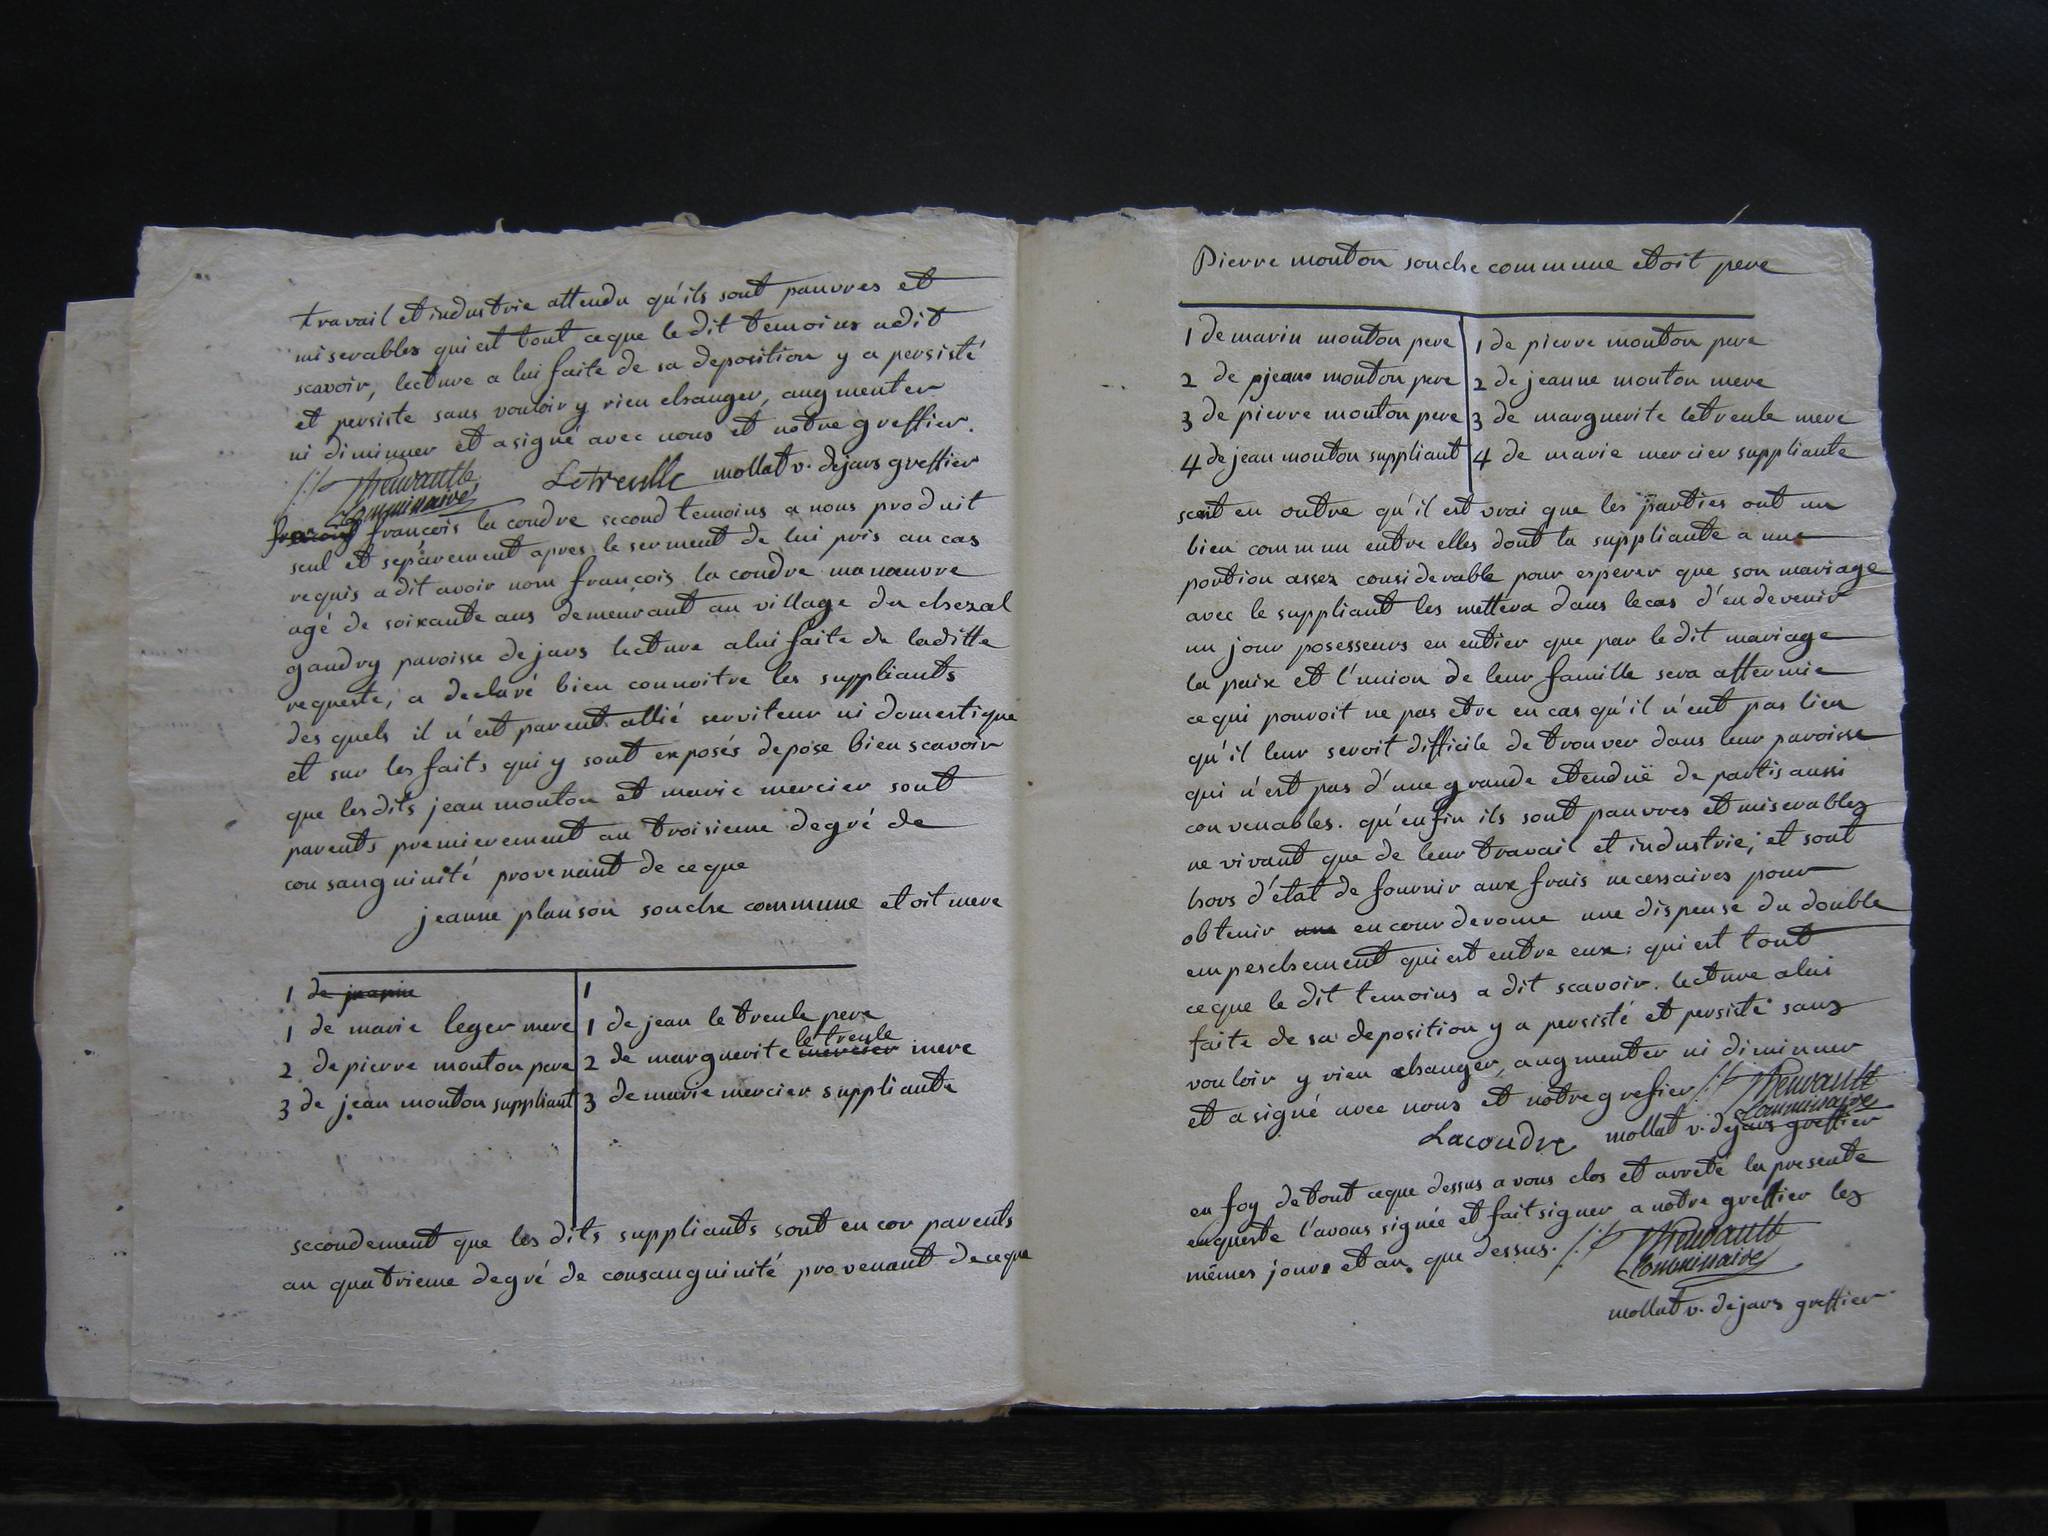 travail et industrie attendu qu'ils sont pauvres et
miserables qui est tout ce que le dit temoins a dit
scavoir, lecture a lui faite de sa deposition y a persisté
et persiste sans vouloir y rien changer, augmenter
ni diminuer et a signé avec nous et notre greffier.
Letreulle mollat v. de jars greffier
Commissaire
françois françois la coudre second temoins a nous produit
seul et séparement apres le serment de lui pris au cas
requis a dit avoir nom françois la coudre manœuvre
agé de soixante ans demeurant au village du chezal
gaudry paroisse de jars lecture a lui faite de laditte
requeste, a declaré bien connoitre les suppliants
des quels il n'est parent allié serviteur ni domestique
et sur les faits qui y sont exposés depose bien scavoir
que lesdits jean mouton et marie mercier sont
parents premierement au troisieme degré de
consanguinité provenant de ce que
jeanne planson souche commune etoit mere
1 de jeanne 1
1 de marie leger mere 1 de jean le treule pere
letreule
2 de pierre mouton pere 2 de marguerite mercier mere
3 de jean mouton suppliant 3 de marie mercier suppliante
secondement que les dits suppliants sont encor parents
au quatrieme degré de consanguinité provenant de ce que
Pierre mouton souche commune etoit pere
1 de marin mouton pere 1 de pierre mouton pere
2 de jean mouton pere 2 de jeanne mouton mere
3 de pierre mouton pere 3 de marguerite letreule mere
4 de jean mouton suppliant 4 de marie mercier suppliante
scait en outre qu'il est vrai que les parties ont un
bien commun entre elles dont la suppliante a une
portion assez considerable pour espérer que son mariage
avec le suppliant les mettera dans le cas d'en devenir
un jour posesseurs en entier que par le dit mariage
la paix et l'union de leur famille sera affermie
ce qui pouroit ne pas etre en cas qu'il n'eut pas lieu
qu'il leur seroit difficile de trouver dans leur paroisse
qui n'est pas d'une grande etenduë de partis aussi
convenables. qu'enfin ils sont pauvres et miserables
ne vivant que de leur travail et industrie; et sont
hors d'état de fournir aux frais necessaires pour
obtenir une en cour de rome une dispense du double
empeschement qui est entre eux: qui est tout
ce que le dit temoins a dit scavoir. lecture a lui
faite de sa deposition y a persisté et persiste sans
vouloir y rien changer, augmenter ni diminuer
et a signé avec nous et notre grefier
Commissaire
Lacoudre mollat v. de jars greffier
en foy de tout ce que dessus avons clos et arreté la presente
enqueste l'avons signée et fait signer a notre greffier les
mêmes jours et an que dessus.
Commissaire
mollat v. de jars greffier